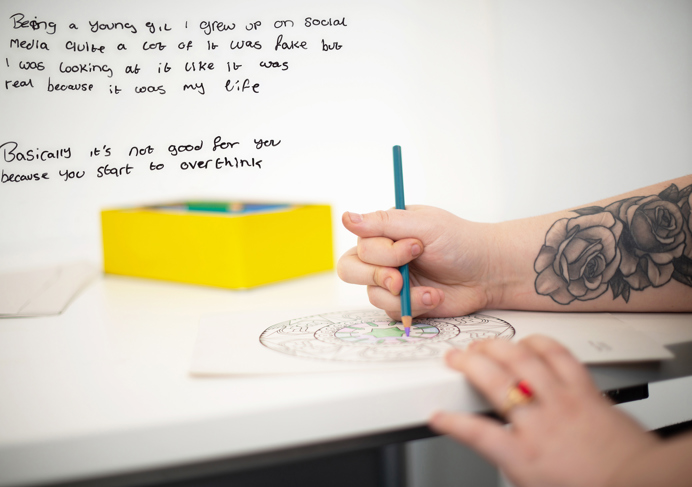 Being a young girl I grew up on social
media quite a lot of it was fake but
I was looking at it like it was
real because it was my life
Basically it's not good for you
because you start to overthink